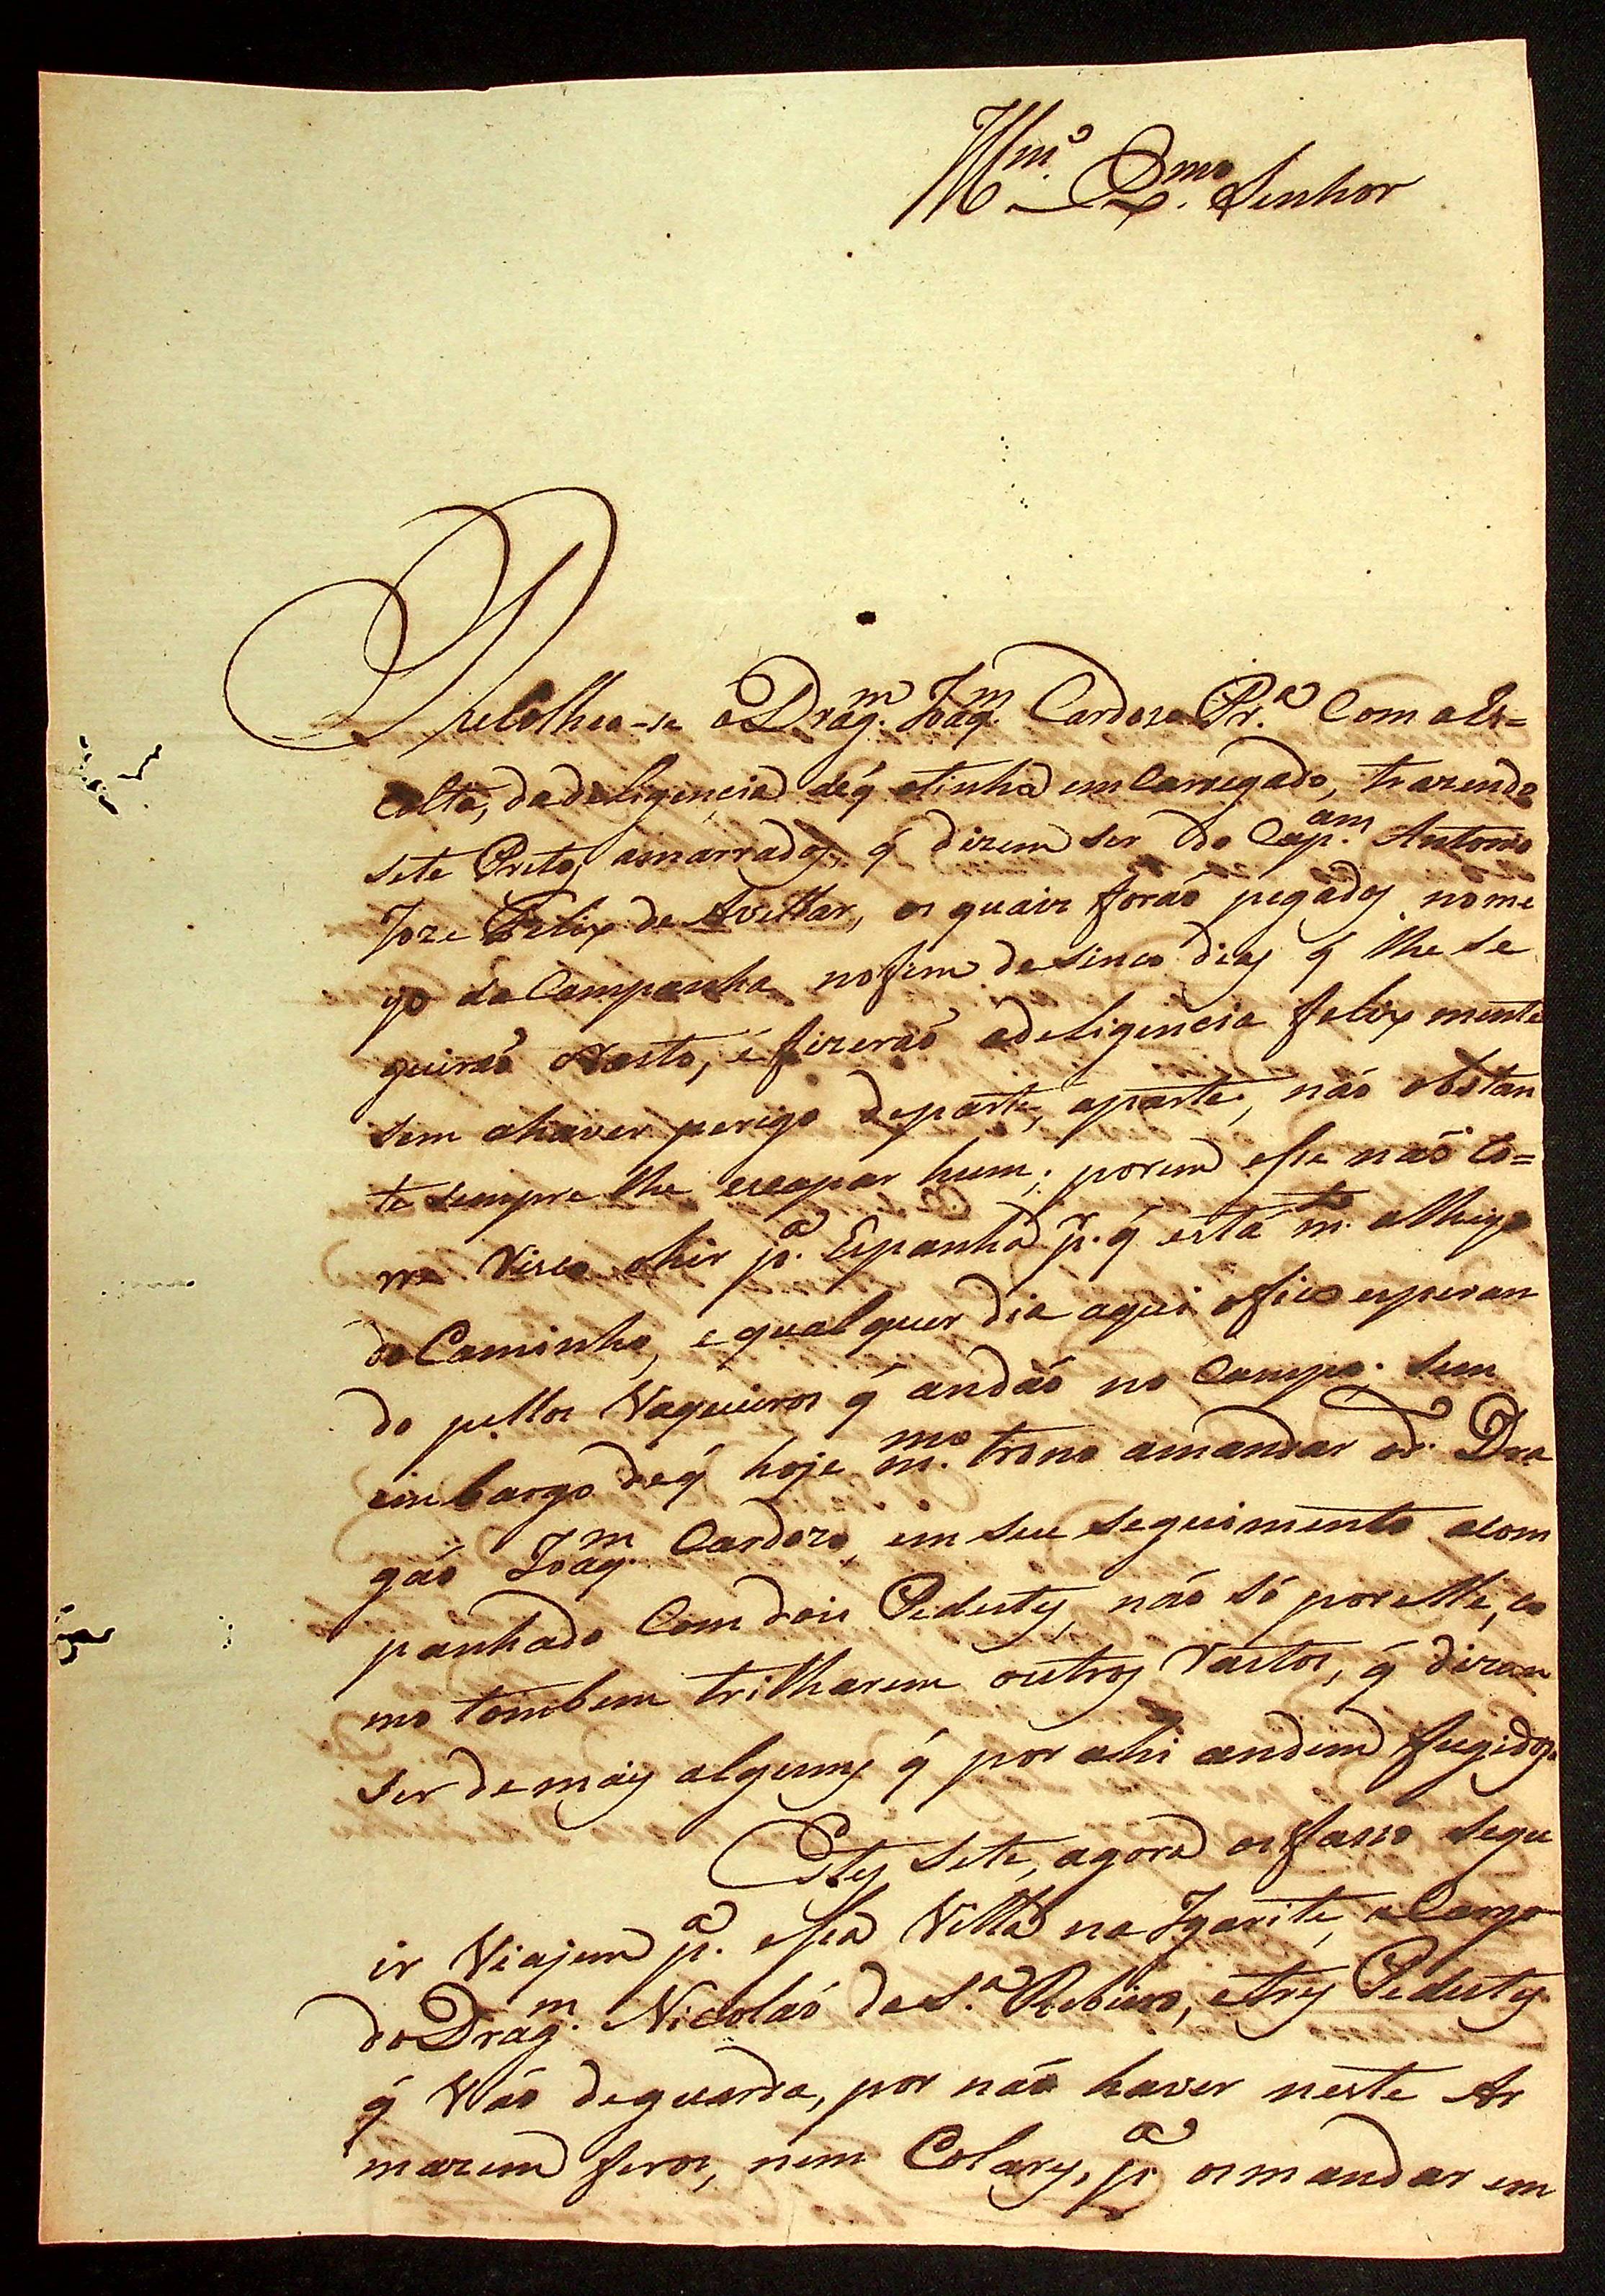 Illm.º Exmo. Senhor
Recolheo-se o Drag.m Joaq.m Cardozo Pr.ª Com a Es=
colta, da deligencia de q̃ o tinha em Carregado, trazendo
sete Pretos amarrados, q̃ dizem ser do Cap.am Antonio
Joze Felix de Avellar, os quais foraõ pegados no me
yo da Campanha no fim de sinco dias q̃ lhe se
guiraõ o Rasto, e fizeraõ a deligencia felix mente
sem a haver perigo de parte, a parte, não obstan
te sempre lhe escapar hum; porem esse naõ Co=
rre Risco o hir p.ª Espanha p.r q̃ está m.to alheyo
do Caminho, e qual quer dia aqui o fico esperan
do pellos Vaqueiros q̃ andão no Campo. Sem
embargo de q̃ hoje m.mo torno amandar o d.º Dra
gaõ Joaq.m Cardozo, em seu seguimento acom
panhado Com dois Pedestes, não só por elle, co
mo tombem trilharem outros Rastos, q̃ dizem
ser de mais alguns q̃ por ahi andem fugidos.
Estes sete, agora os fasso segu
ir Viajem p.ª essa Villa na Igarité, a Cargo
do Drag.m Nicoláo de S.ª Ribeiro, e tres Pedestes
q̃ Vão de guarda, por não haver neste Ar
mazem feros, nem Colares, p.ª os mandar em